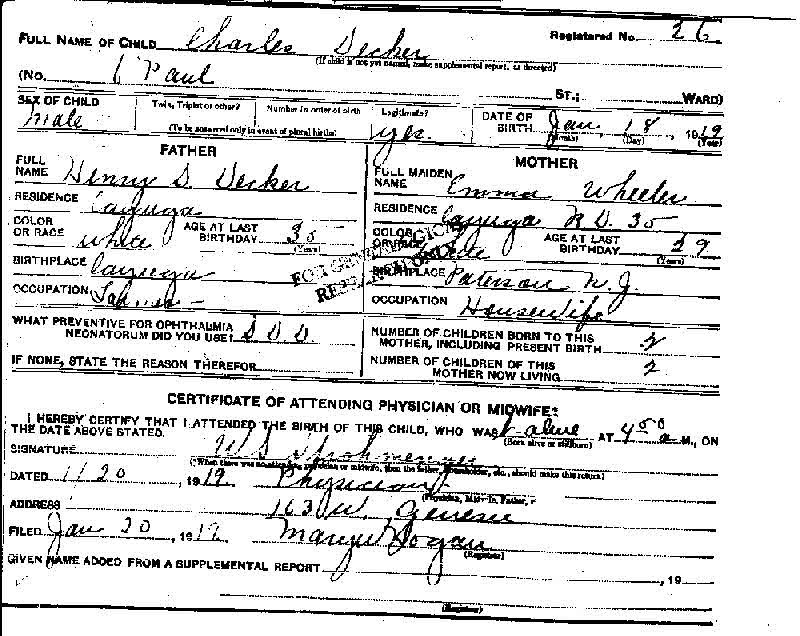 Registered No. 26
FULL NAME OF CHILD Charles Decker
(If child is not yet named, make supplemental report, as directed)
(No. Paul ST.; WARD)
SEX OF CHILD male Twin, Triplet or other? Number in order of birth Legitimate? yes. DATE OF BIRTH Jan. 18, 1919
(To be answered only in event of plural births) (Month) (Day) (Year)
FATHER MOTHER
FULL NAME Henry D. Decker FULL MAIDEN NAME Emma Wheeler
RESIDENCE Cayuga RESIDENCE Cayuga R D. 35
COLOR OR RACE white AGE AT LAST BIRTHDAY 35 (Years) COLOR OR RACE AGE AT LAST BIRTHDAY 29 (Years)
FOR GENEALOGICAL
RESEARCH ONLY
BIRTHPLACE Cayuga BIRTHPLACE Paterson N. J.
OCCUPATION OCCUPATION Housewife
WHAT PREVENTIVE FOR OPHTHALMIA NEONATORUM DID YOU USE? NUMBER OF CHILDREN BORN TO THIS MOTHER, INCLUDING PRESENT BIRTH 2
IF NONE, STATE THE REASON THEREFOR NUMBER OF CHILDREN OF THIS MOTHER NOW LIVING 2
CERTIFICATE OF ATTENDING PHYSICIAN OR MIDWIFE
I HEREBY CERTIFY THAT I ATTENDED THE BIRTH OF THIS CHILD, WHO WAS alive AT 4 50 a M., ON
THE DATE ABOVE STATED. (Born alive or stillborn)
SIGNATURE W S
DATED 1/20, 1919 Physician
(Physician, Midwife, Father,
ADDRESS 163 W. Genesee
FILED Jan 20, 1919 Hogan
(Registrar)
GIVEN NAME ADDED FROM A SUPPLEMENTAL REPORT , 19
(Registrar)